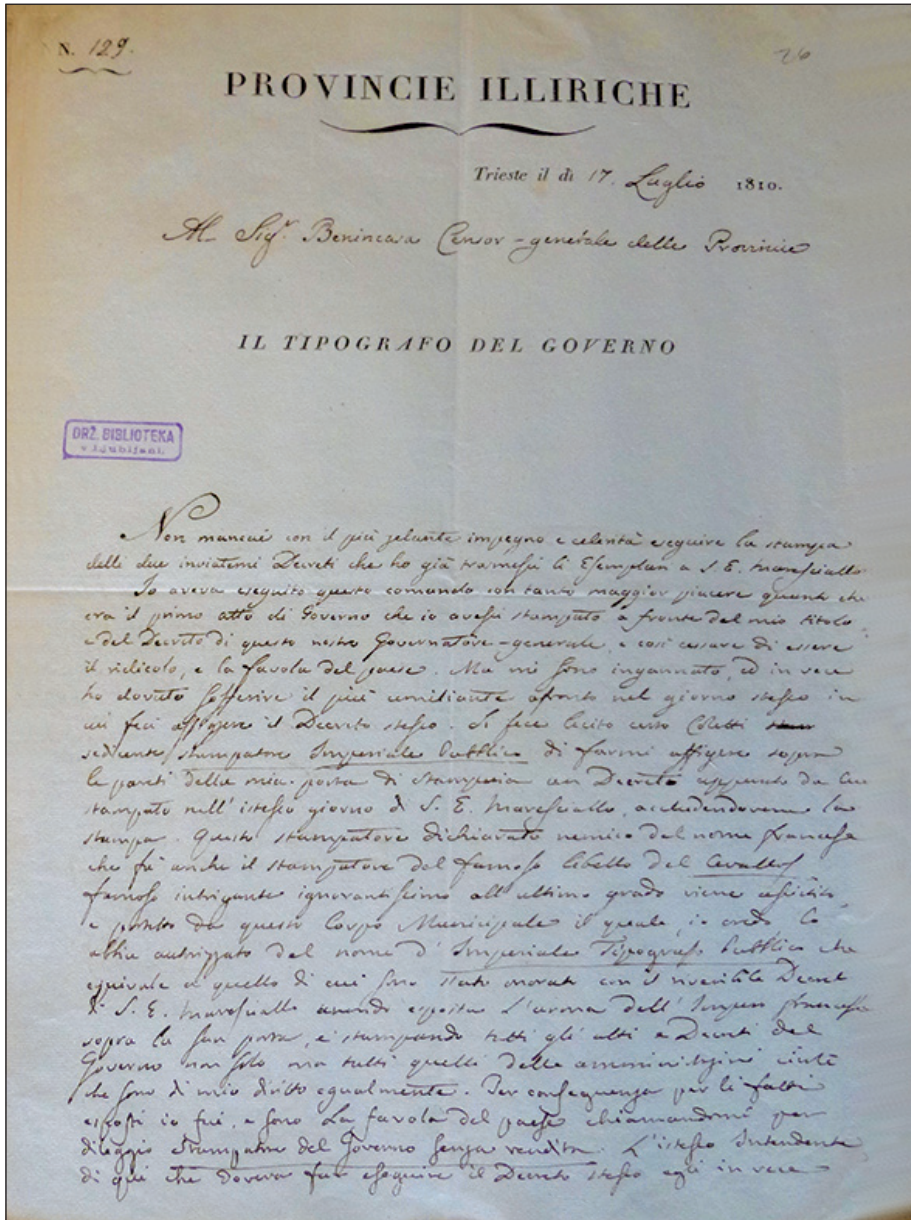 N. 129.
26
PROVINCIE ILLIRICHE
Trieste il dì 17. Luglio 1810.
Al Sigr. Benincasa Censor-generale delle Provincie
IL TIPOGRAFO DEL GOVERNO
DRŽ. BIBLIOTEKA
v Ljubljani.
Non mancai con il più zelante impegno e celerità eseguire la stampa
delli due inviatemi Decreti che ho già trasmessi li Esemplari a S. E. Maresciallo
Io aveva eseguito questo comando con tanto maggior piacere quanto che
era il primo atto di Governo che io avessi stampato a fronte del mio titolo
e del Decreto di questo nostro Governatore-generale, e così cessare di essere
il ridicolo, e la favola del paese. Ma mi sono ingannato, ed in vece
ho dovuto sofferire il più umiliante afronto nel giorno stesso in
cui feci affigere il Decreto stesso. Si fece lecito certo Coletti
sedicente stampatore Imperiale Pubblico di farmi affigere sopra
le pareti della mia porta di Stamperia un Decreto appunto da lui
stampato nell'istesso giorno di S. E. Maresciallo, accludendovene la
stampa. Questo stampatore dichiarato nemico del nome francese
che fù anche il stampatore del famoso libello del Cevallos
famoso intrigante ignorantissimo all'ultimo grado viene
e da questo Corpo Municipale il quale, io credo lo
abbia autorizzato del nome d'Imperiale Tipografo Pubblico che
equivale a quello di cui sono stato onorato con il riveribile Decret
di S. E. Maresciallo avendo esposta l'arma dell' francese
sopra la sua porta, e stampando tutti gli atti e Decreti del
Governo non solo ma tutti quelli delle amministrazioni civili
che sono di mio diritto egualmente. Per conseguenza per li fatti
esposti io fui, e sono La favola del paese chiamandomi per
dileggio Stampatore del Governo senza vendita. L'istesso Intendente
di quì che doveva far eseguire il Decreto stesso egli in vece